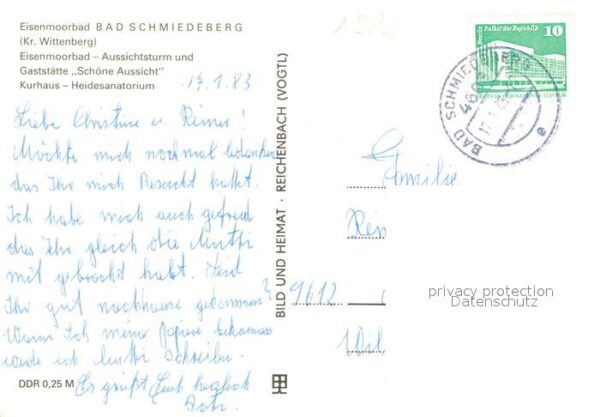 Eisenmoorbad BAD SCHMIEDEBERG
(Kr. Wittenberg)
Eisenmoorbad – Aussichtsturm und
Gaststätte „Schöne Aussicht"
Kurhaus – Heidesanatorium
17.1.83
Liebe Christine u. Reiner!
Möchte mich nochmal bedanken
das Ihr mich Besucht hattet.
Ich habe mich auch gefreut
das Ihr gleich die Mutti
mit gebracht habt. Seid
Ihr gut nachhause gekommen?
Wann Ich meine Papiere bekomme
werde ich Mutti Schreiben.
Es grüßt Euch herzlich
DDR 0,25 M
BILD UND HEIMAT · REICHENBACH (VOGTL)
Palast der Republik
10
BAD SCHMIEDEBERG
Familie
Rein
9612
privacy protection
Datenschutz